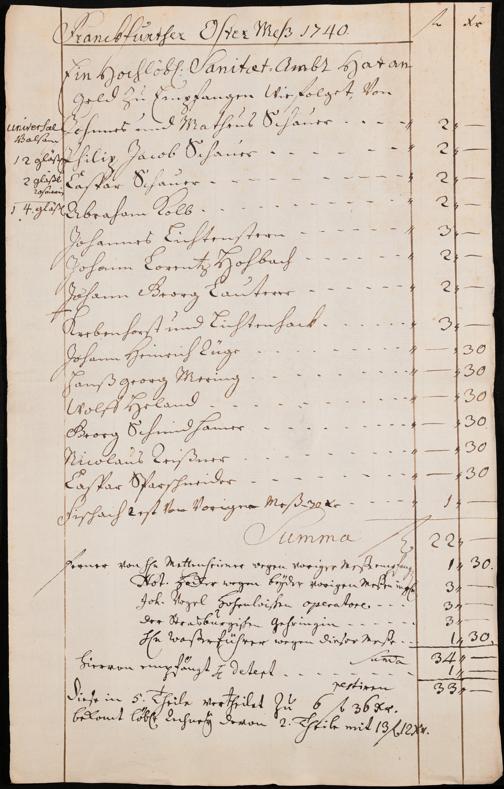 Franckfurther Oster Meß 1740. fl Xr
Ein Hochlöbl: Sanitæt-Ambt Hat an
Geld zu Empfangen Wie folget, Von
Johannes und Matheus Schauer - - - " 2"—
universal
Balsam
Philip Jacob Schauer - - - " 2"—
12 gläßl
Caspar Schauer - - - " 2"—
2 gläßl
Abraham Kolb - - - " 2"—
14. gläßl
Johannes Lichtenstern - - - " 3"—
Johann Lorentz Hohbach - - - " 2"—
Johann Georg Lauterer - - - " 2"—
Krebenhorst und Lichtenhack - - - " 3"—
Johann Heinrich Lüge - - - " — "30
Hanß Georg Mering - - - " — "30
Wolff Heland - - - " — "30
Georg Schmidhamer - - - " — "30
Nicolaus Reißner - - - " — "30
Caspar Sparschneider - - - " — "30
Fischach rest von Voriger Meß 30 Xr " 1"—
Summa fl 22"—
ferner von H. Mettenheimer wegen voriger Meß 1"30.
wegen beyder vorigen Meßen 3"—
Joh. Vogel Hohenlohischen operatore - - - 3"—
der Strasburgischen - - - 3"—
H. Wasserführer wegen dieser Meß - - - 1"30
Suma 34"—
hiervon empfängt - - - 1"—
restiren 33"—
diese in 5. Theile vertheilet zu 6 fl 36 Xr.
bekomt löbl. davon 2. Theile mit 13 fl 12 Xr.